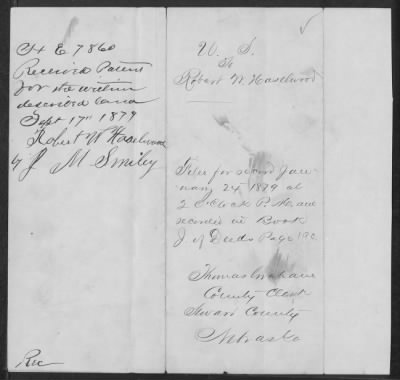 H E 7860
Received Patent
for the within
described land
Sept 17th 1879
Robert W Haselwood
by J M Smiley
Rec
U. S.
To
Robert W. Haselwood
Filed for record Jan-
uary 24 1879 at
2 O'Clock P. M. and
recorded in Book
J. of Deeds Page
Thomas Graham
County Clerk
Seward County
Nebraska